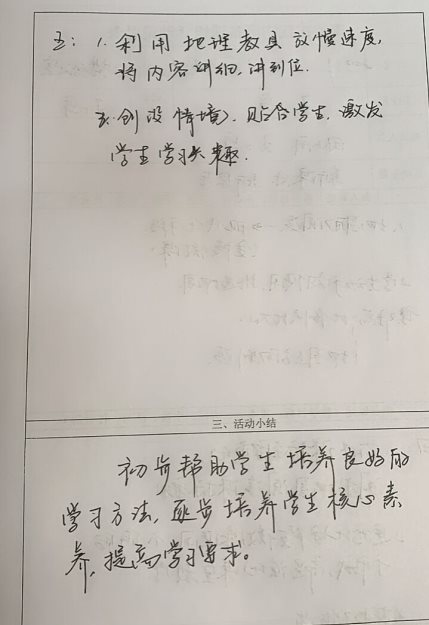 五: 1. 利用地理教具放慢速度,
将内容讲细.讲到位.
2. 创设情境, 贴合学生, 激发
学生学习兴趣.
三、活动小结
初步帮助学生培养良好的
学习方法, 逐步培养学生核心素
养, 提高学习要求。